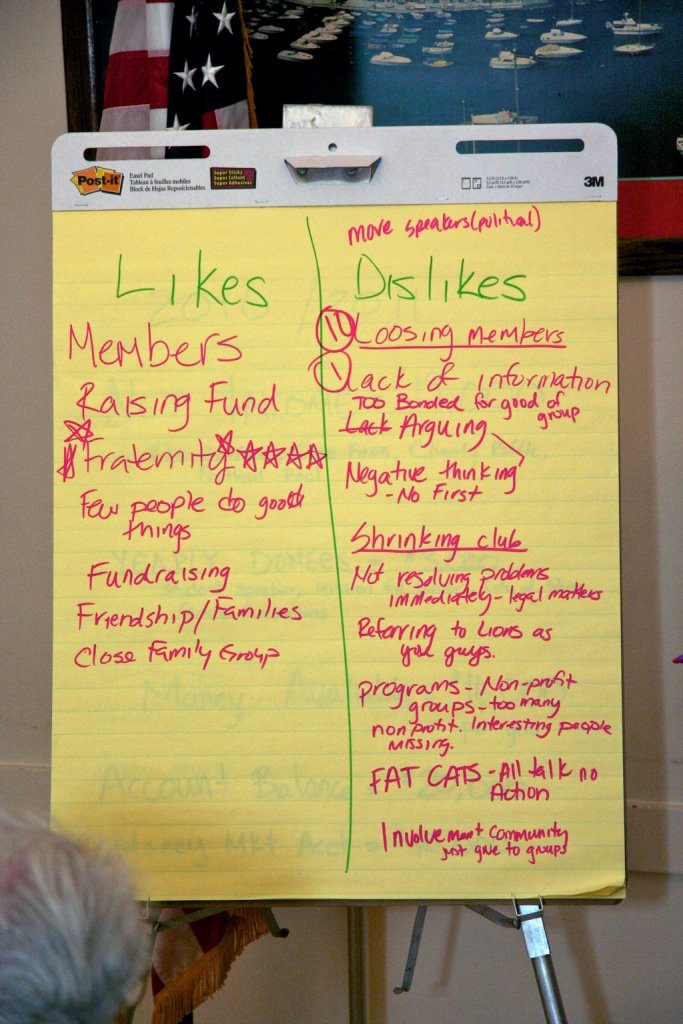 Post-it
Easel Pad
Tableau à feuilles mobiles
Block de Hojas Reposicionables
Super Sticky
Super Collant
Super Adhesivas
3M
more speakers (political)
Likes
Members
Raising Fund
Fraternity
Few people do good
things
Fundraising
Friendship/Families
Close Family Group
Dislikes
10 Loosing members
1 Lack of information
Too Bonded for good of
group
Lack Arguing
Negative thinking
- No First
Shrinking club
Not resolving problems
immediately - legal matters
Referring to Lions as
you guys.
programs - Non-profit
groups - too many
non profit. Interesting people
missing.
FAT CATS - All talk no
Action
Involvement Community
just give to groups